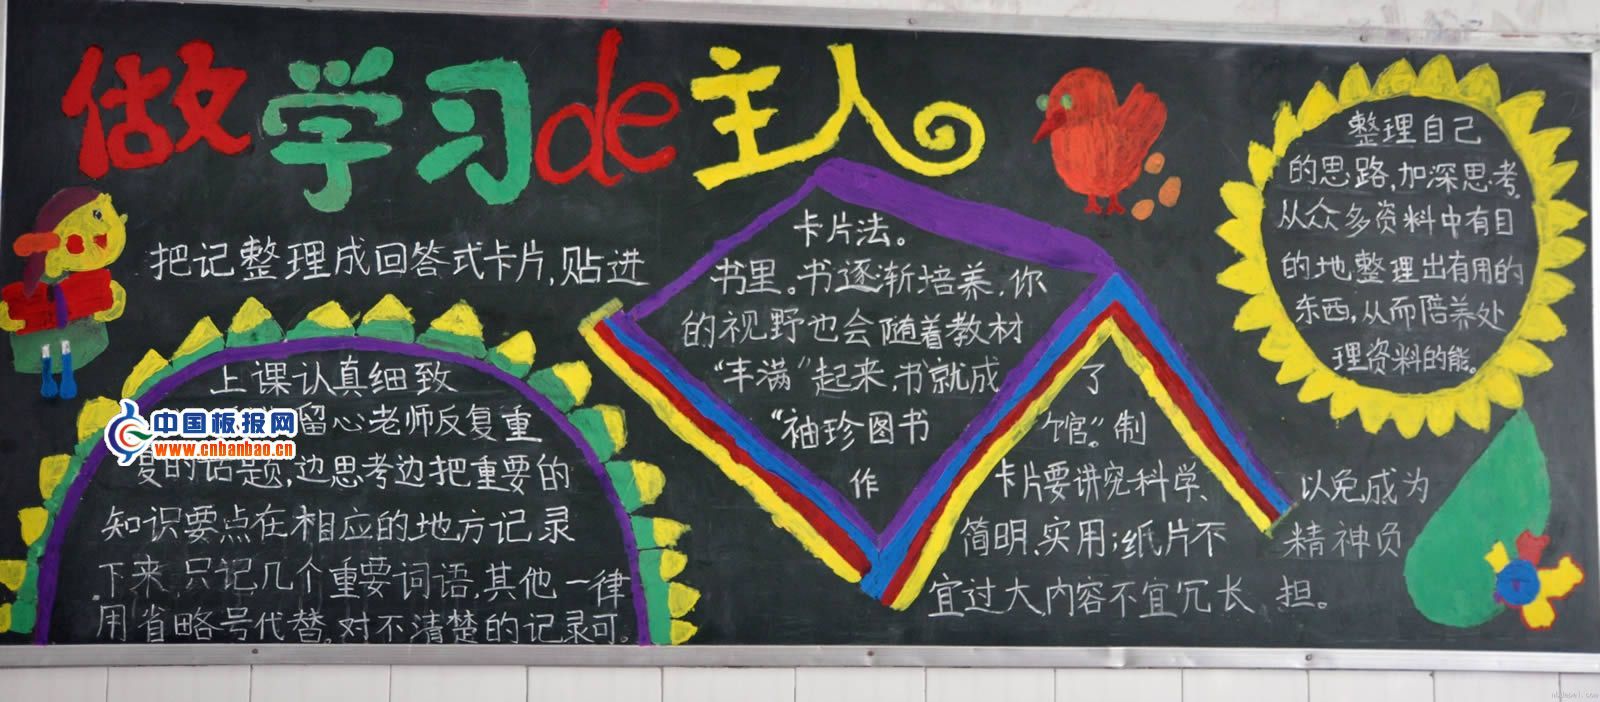 做学习de主人
把记整理成回答式卡片,贴进
上课认真细致
留心老师反复重
复的话题,边思考边把重要的
知识要点在相应的地方记录
下来,只记几个重要词语,其他一律
用省略号代替。对不清楚的记录可。
中国板报网
www.cnbanbao.cn
卡片法。
书里。书逐渐培养,你
的视野也会随着教材
“丰满”起来,书就成了
“袖珍图书馆”。制
作卡片要讲究科学、
简明、实用;纸片不
宜过大,内容不宜冗长
以免成为
精神负
担。
整理自己
的思路,加深思考。
从众多资料中有目
的地整理出有用的
东西,从而陪养处
理资料的能。